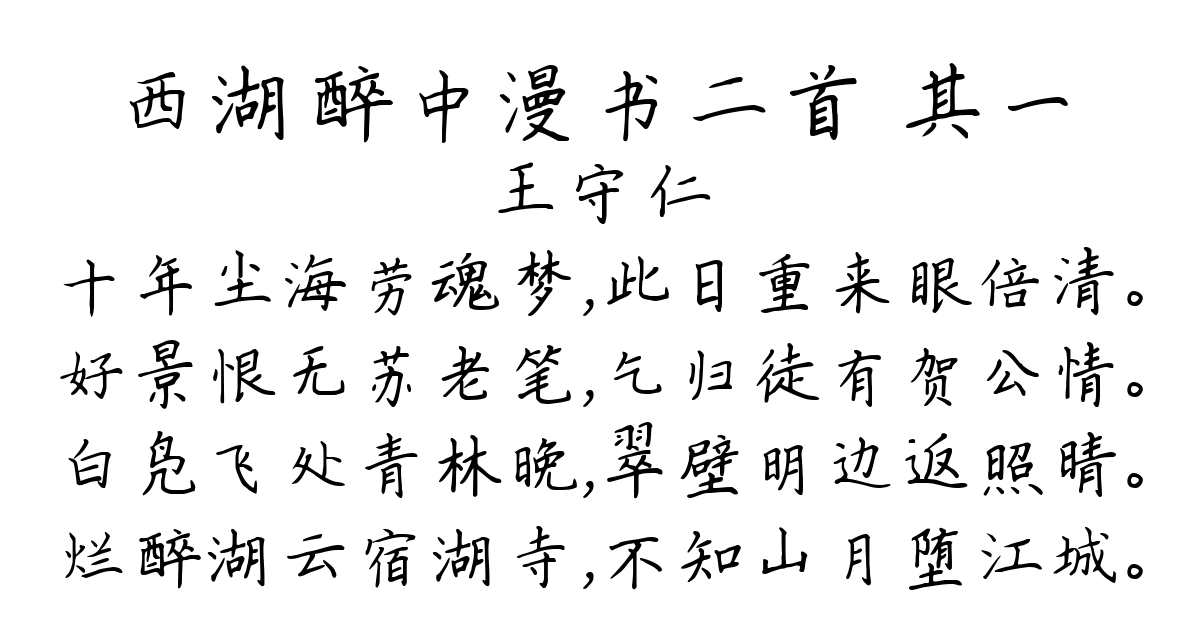 西湖醉中漫书二首 其一
王守仁
十年尘海劳魂梦,此日重来眼倍清。
好景恨无苏老笔,乞归徒有贺公情。
白凫飞处青林晚,翠壁明边返照晴。
烂醉湖云宿湖寺,不知山月堕江城。